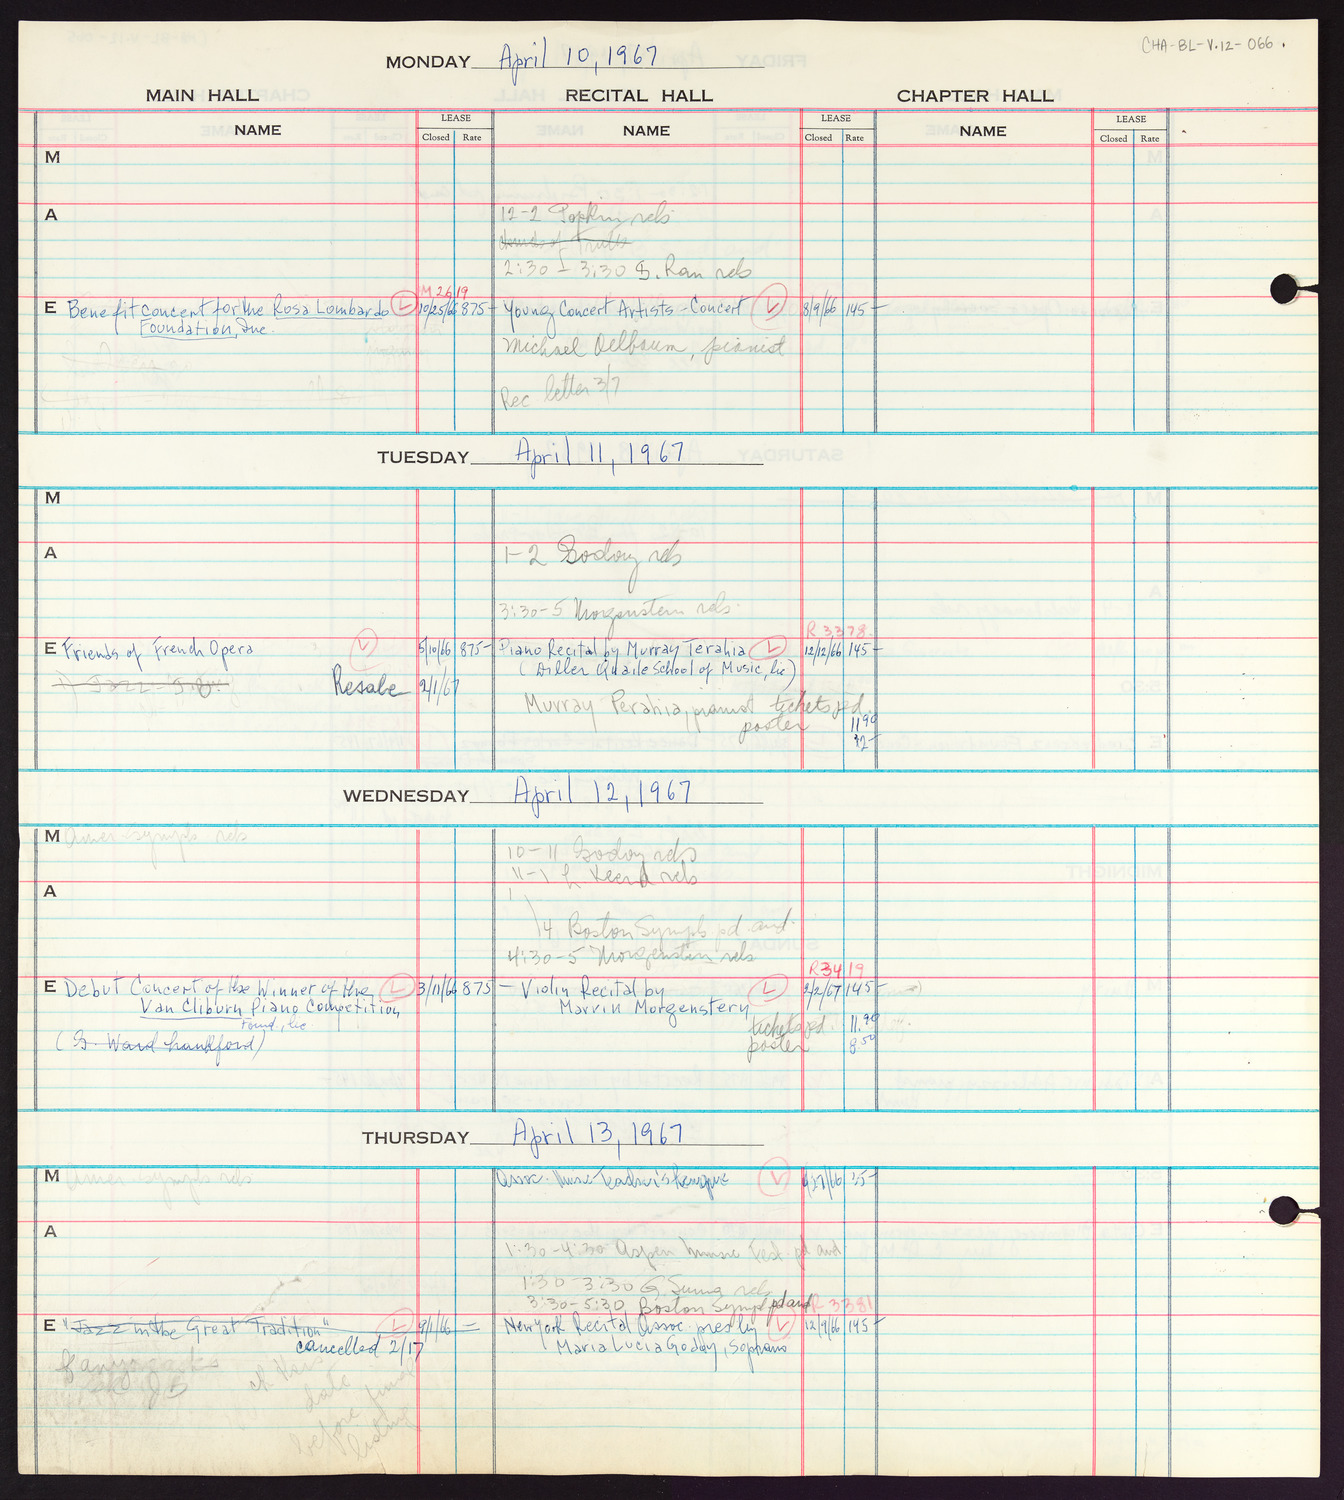 CHA-BL-V.12-066.
MONDAY April 10, 1967
MAIN HALL RECITAL HALL CHAPTER HALL
NAME LEASE Closed Rate NAME LEASE Closed Rate NAME LEASE Closed Rate
M
A 12-2 Popkin rels
Truth
2:30 - 3:30 S. Ran rels
M 2619
E Benefit concert for the Rosa Lombardo L 10/25/66 875- Young Concert Artists - Concert L 8/9/66 145-
Foundation, Inc.
Michael Oelbaum, pianist
Rec letter 3/7
TUESDAY April 11, 1967
M
A 1-2 Godoy rels
3:30-5 Morgenstern rels.
R 3378
E Friends of French Opera L 5/10/66 875- Piano Recital by Murray Terahia L 12/12/66 145-
(Diller Quaile School of Music, Inc)
Jazz Resale 2/1/67
Murray Perahia, pianist tickets pd.
poster 11.90
12-
WEDNESDAY April 12, 1967
M Amer symph rels
10-11 Godoy rels
11-1 rels
A 1
4 Boston Symph pd aud.
4:30-5 Morgenstern rels
R3419
E Debut Concert of the Winner of the L 3/11/66 875- Violin Recital by L 2/2/67 145-
Van Cliburn Piano Competition Marvin Morgenstern
Found., Inc.
tickets pd. 11.90
(G. Ward Lankford) poster 8.50
THURSDAY April 13, 1967
M Amer. symph rels Assoc. Music Teachers League L /66 35-
A
1:30-4:30 Aspen Music Fest. pd aud
1:30-3:30 G. rels
3:30-5:30 Boston Symph pd aud R 3381
E "Jazz in the Great Tradition" L 9/1/66 New York Recital Assoc. pres by L 12/9/66 145-
cancelled 2/17 Maria Lucia Godoy, Soprano
date
before final